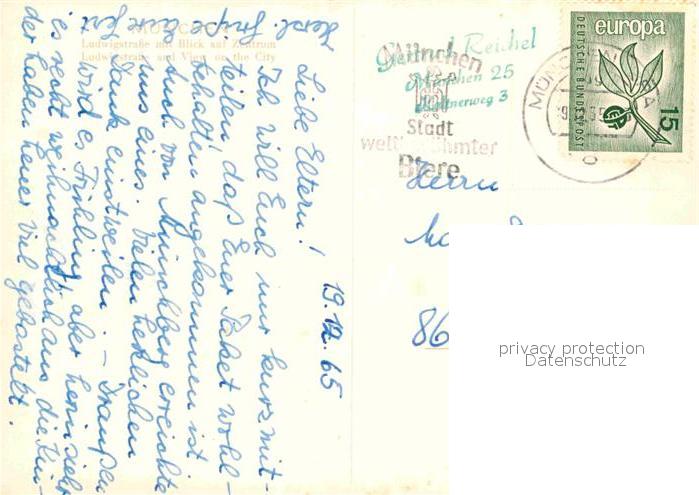 19.12.65
Liebe Eltern!
Ich will Euch nur kurz mit-
teilen, daß Euer Paket wohl-
behalten angekommen ist.
Auch von Münchberg erreichte
uns eines. Vielen herzlichen
Dank einstweilen. – Draußen
wird es Frühling, aber herin sieht
es recht weihnachtlich aus, die Kin-
der haben heuer viel gebastelt.
Herzl. Grüße
Ludwigstraße mit Blick auf Zentrum
Ludwigstraße and View on the City
München
Stadt
weltberühmter
Biere
Reichel
München 25
3
europa
DEUTSCHE BUNDESPOST
15
Herrn
86
privacy protection
Datenschutz